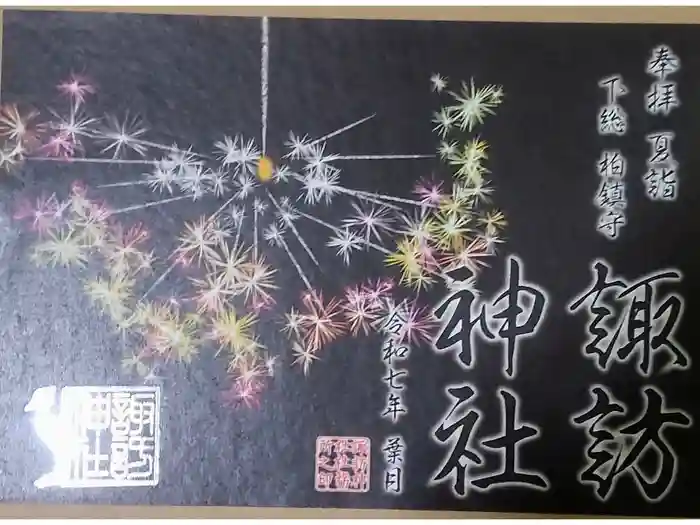 奉拝 夏詣
下総 柏鎮守
諏訪
神社
令和七年 葉月
諏訪
神社